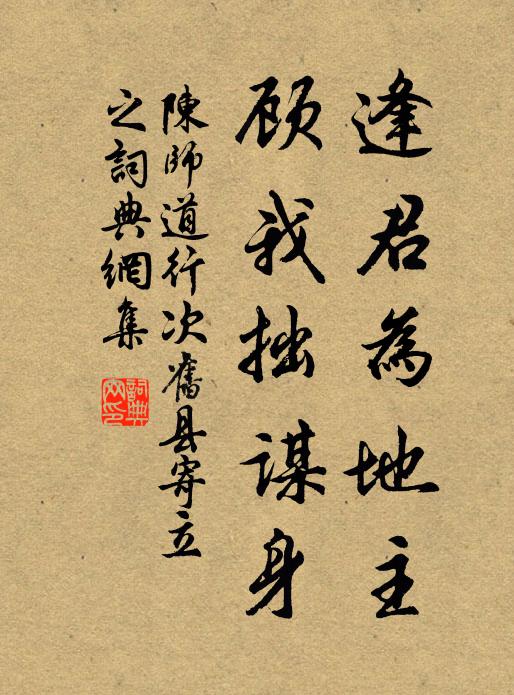 逢君為地主
顾我拙谋身
陳師道行次舊县寄立
之詞典網集
詞典
网印